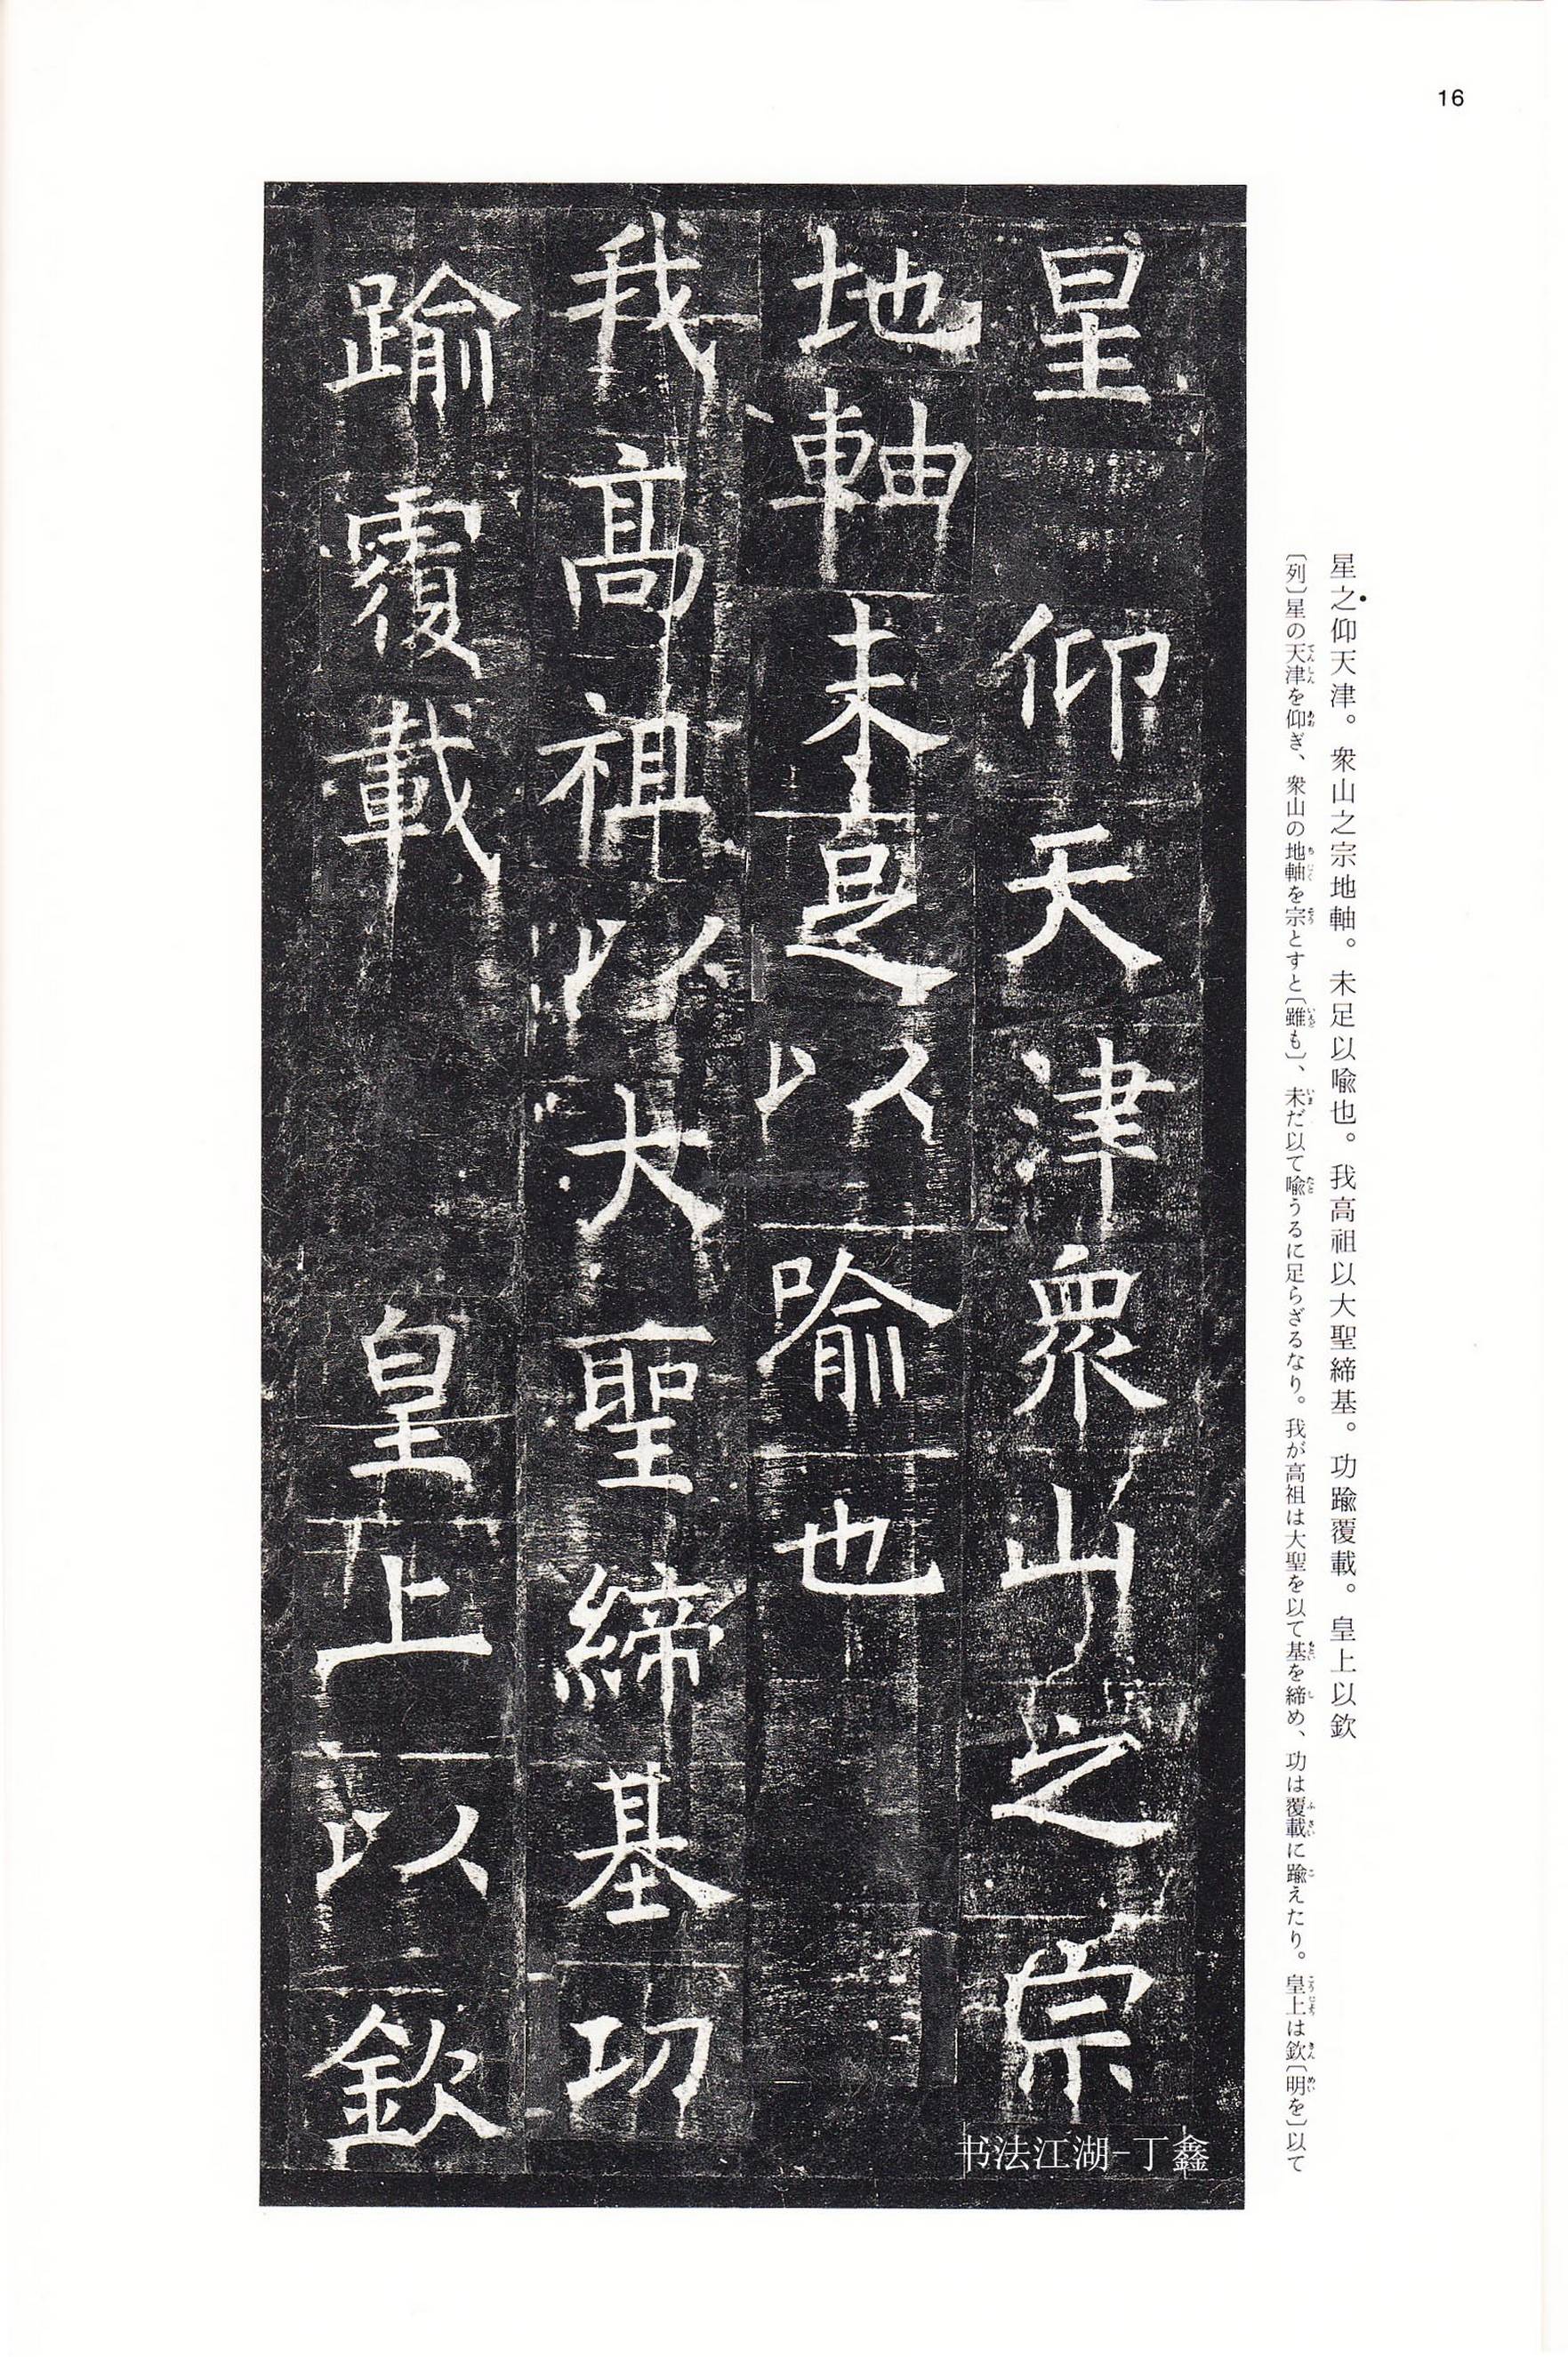 16
星之仰天津。衆山之宗地軸。未足以喩也。我高祖以大聖締基。功踰覆載。皇上以欽
〔列〕星の天津を仰ぎ、衆山の地軸を宗とすと〔雖も〕、未だ以て喩うるに足らざるなり。我が高祖は大聖を以て基を締め、功は覆載に踰えたり。皇上は欽〔明を〕以て
星仰天津衆山之宗
地軸未足以喻也
我高祖以大聖締基功
踰覆載皇上以欽
书法江湖-丁鑫